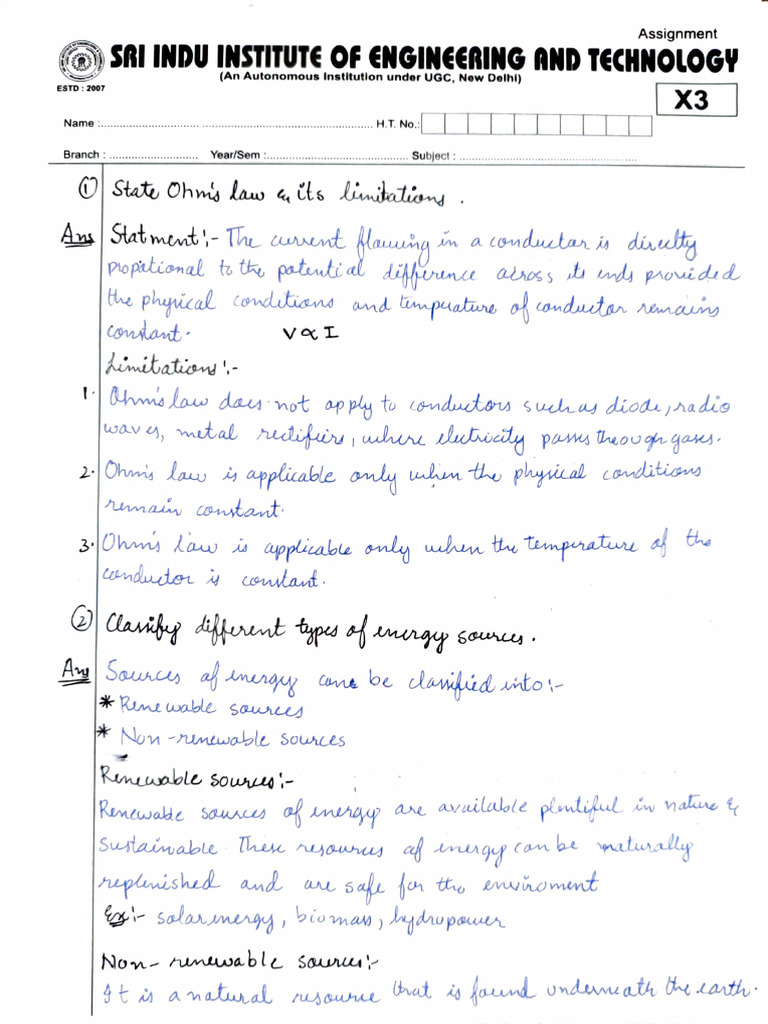 Assignment
SRI INDU INSTITUTE OF ENGINEERING AND TECHNOLOGY
(An Autonomous Institution under UGC, New Delhi)
ESTD : 2007
X3
Name :
H.T. No.:
Branch : Year/Sem : Subject :
① State Ohm's law & its limitations.
Ans Statment:- The current flowing in a conductor is directly
propotional to the potential difference across its ends provided
the physical conditions and temperature of conductor remains
constant. V ∝ I
Limitations:-
1. Ohm's law does not apply to conductors such as diode, radio
waves, metal rectifiers, where electricity passes through gases.
2. Ohm's law is applicable only when the physical conditions
remain constant.
3. Ohm's law is applicable only when the temperature of the
conductor is constant.
② Classify different types of energy sources.
Ans Sources of energy can be classified into:-
* Renewable sources
* Non-renewable sources
Renewable sources:-
Renewable sources of energy are available plentiful in nature &
sustainable. These resources of energy can be naturally
replenished and are safe for the enviroment
Ex:- solar energy, biomass, hydropower
Non-renewable sources:-
It is a natural resource that is found underneath the earth.